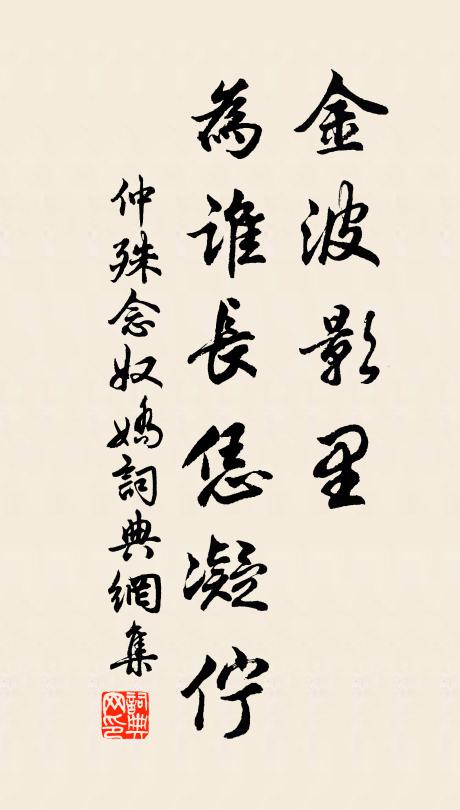 金波影里
為谁長恁凝佇
仲殊念奴嬌詞典網集
詞典網印